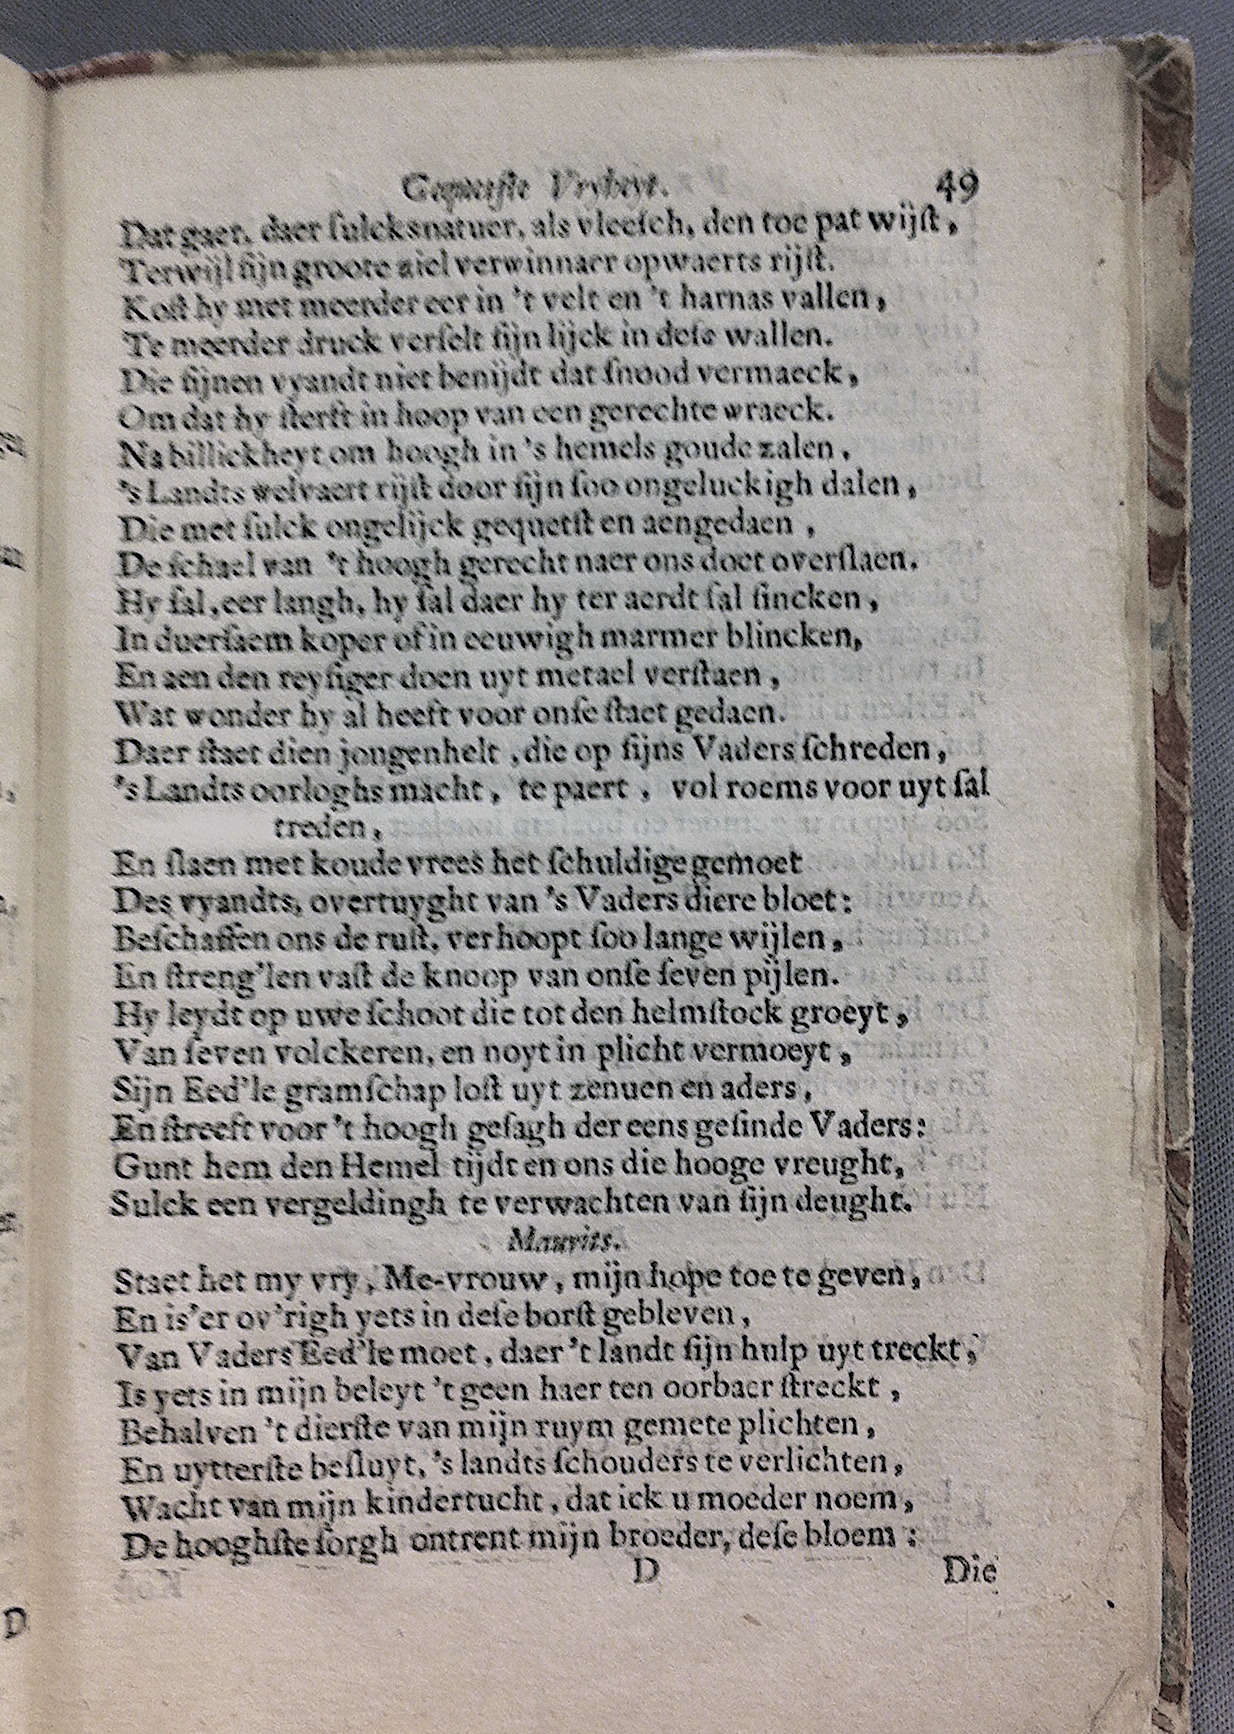 Gequetſte Vryheyt. 49
Dat gaet, daer ſulcksnatuer, als vleeſch, den toe pat wijſt,
Terwijl ſijn groote ziel verwinnaer opwaerts rijſt.
Koſt hy met meerder eer in 't velt en 't harnas vallen,
Te meerder druck verſelt ſijn lijck in deſe wallen.
Die ſijnen vyandt niet benijdt dat ſnood vermaeck,
Om dat hy ſterft in hoop van een gerechte wraeck.
Na billickheyt om hoogh in 's hemels goude zalen,
's Landts welvaert rijſt door ſijn ſoo ongeluckigh dalen,
Die met ſulck ongelijck gequetſt en aengedaen,
De ſchael van 't hoogh gerecht naer ons doet overſlaen.
Hy ſal, eer langh, hy ſal daer hy ter aerdt ſal ſincken,
In duerſaem koper of in eeuwigh marmer blincken,
En aen den reyſiger doen uyt metael verſtaen,
Wat wonder hy al heeft voor onſe ſtaet gedaen.
Daer ſtaet dien jongenhelt, die op ſijns Vaders ſchreden,
's Landts oorloghs macht, te paert, vol roems voor uyt ſal
treden,
En ſlaen met koude vrees het ſchuldige gemoet
Des vyandts, overtuyght van 's Vaders diere bloet:
Beſchaffen ons de ruſt, verhoopt ſoo lange wijlen,
En ſtreng'len vaſt de knoop van onſe ſeven pijlen.
Hy leydt op uwe ſchoot die tot den helmſtock groeyt,
Van ſeven volckeren, en noyt in plicht vermoeyt,
Sijn Eed'le gramſchap loſt uyt zenuen en aders,
En ſtreeft voor 't hoogh geſagh der eens geſinde Vaders:
Gunt hem den Hemel tijdt en ons die hooge vreught,
Sulck een vergeldingh te verwachten van ſijn deught.
Maurits.
Staet het my vry, Me-vrouw, mijn hope toe te geven,
En is'er ov'righ yets in deſe borſt gebleven,
Van Vaders Eed'le moet, daer 't landt ſijn hulp uyt treckt,
Is yets in mijn beleyt 't geen haer ten oorbaer ſtreckt,
Behalven 't dierſte van mijn ruym gemete plichten,
En uytterſte beſluyt, 's landts ſchouders te verlichten,
Wacht van mijn kindertucht, dat ick u moeder noem,
De hooghſte ſorgh ontrent mijn broeder, deſe bloem:
D Die
D